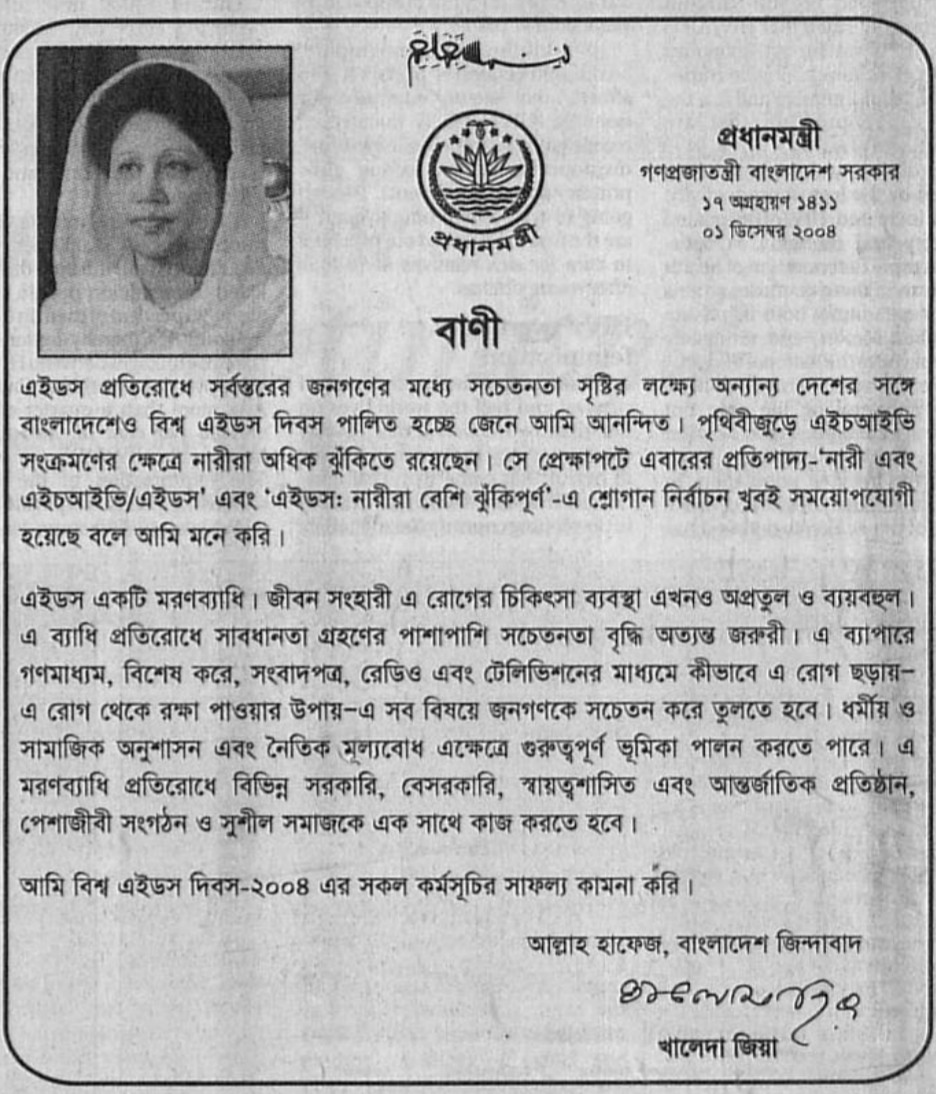 প্রধানমন্ত্রী
প্রধানমন্ত্রী
গণপ্রজাতন্ত্রী বাংলাদেশ সরকার
১৭ অগ্রহায়ণ ১৪১১
০১ ডিসেম্বর ২০০৪
বাণী
এইডস প্রতিরোধে সর্বস্তরের জনগণের মধ্যে সচেতনতা সৃষ্টির লক্ষ্যে অন্যান্য দেশের সঙ্গে
বাংলাদেশেও বিশ্ব এইডস দিবস পালিত হচ্ছে জেনে আমি আনন্দিত। পৃথিবীজুড়ে এইচআইভি
সংক্রমণের ক্ষেত্রে নারীরা অধিক ঝুঁকিতে রয়েছেন। সে প্রেক্ষাপটে এবারের প্রতিপাদ্য-‘নারী এবং
এইচআইভি/এইডস’ এবং ‘এইডস: নারীরা বেশি ঝুঁকিপূর্ণ’-এ শ্লোগান নির্বাচন খুবই সময়োপযোগী
হয়েছে বলে আমি মনে করি।
এইডস একটি মরণব্যাধি। জীবন সংহারী এ রোগের চিকিৎসা ব্যবস্থা এখনও অপ্রতুল ও ব্যয়বহুল।
এ ব্যাধি প্রতিরোধে সাবধানতা গ্রহণের পাশাপাশি সচেতনতা বৃদ্ধি অত্যন্ত জরুরী। এ ব্যাপারে
গণমাধ্যম, বিশেষ করে, সংবাদপত্র, রেডিও এবং টেলিভিশনের মাধ্যমে কীভাবে এ রোগ ছড়ায়–
এ রোগ থেকে রক্ষা পাওয়ার উপায়–এ সব বিষয়ে জনগণকে সচেতন করে তুলতে হবে। ধর্মীয় ও
সামাজিক অনুশাসন এবং নৈতিক মূল্যবোধ এক্ষেত্রে গুরুত্বপূর্ণ ভূমিকা পালন করতে পারে। এ
মরণব্যাধি প্রতিরোধে বিভিন্ন সরকারি, বেসরকারি, স্বায়ত্বশাসিত এবং আন্তর্জাতিক প্রতিষ্ঠান,
পেশাজীবী সংগঠন ও সুশীল সমাজকে এক সাথে কাজ করতে হবে।
আমি বিশ্ব এইডস দিবস-২০০৪ এর সকল কর্মসূচির সাফল্য কামনা করি।
আল্লাহ হাফেজ, বাংলাদেশ জিন্দাবাদ
খালেদা জিয়া